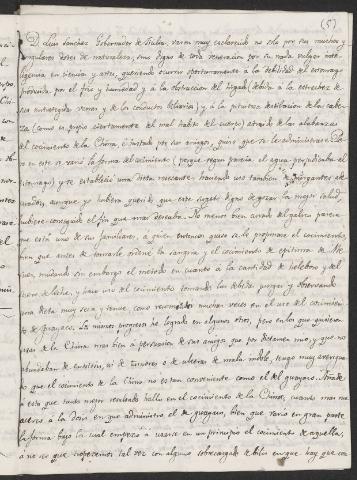 (5)
D. Luis Sanchez Gobernador de varon muy esclarecido no solo por sus muchos y
singulares dotes de naturaleza, sino digno de toda veneracion por su nada vulgar inte-
ligencia en ciencias y artes, queriendo ocurrir oportunamente à la debilidad del estomago
producida por el frio y humedad y à la obstruccion del higado (debida à la estrechez de
sus venas y de los conductos biliarios) y à la pituitosa destilacion de la cabe-
za (como es propio ciertamente del mal habito del cuerpo) atraido de las alabanzas
del cocimiento de la China, è instado por sus amigos, quiso que se le administrase. Pe-
ro en este se varió la forma del cocimiento (porque segun parecia el agua perjudicaba el
estomago) y se estableció una dieta haviendo uso tambien de purgantes
aunque yo hubiera querido que este sugeto digno de gozar la mejor salud,
hubiese conseguido el fin que mas deseaba. No menos bien curado del galico parece
que está uno de sus familiares, à quien entonces quise se le propinase el cocimiento,
bien que antes de tomarlo ordené la sangria y el cocimiento de epitimo de Me-
sues, mudando sin embargo el metodo en cuanto à la cantidad de heleboro y del
suero de leche, y hace uso del cocimiento tomando las bebidas purgas y observando
una dieta muy seca y tenue, como recomendé muchas veces en el uso del cocimien-
to de guayaco. Los mismos progresos he logrado en algunos otros, pero en los que quisieron
usar de la China mas bien à persuacion de sus amigos que por dictamen mio, y que no
abundaban de ni de tumores o de ulceras de mala indole, tengo muy averigua-
do que el cocimiento de la China no es tan conveniente como el del guayaco. Añade
à esto que tanto mejor resultado hallo en el cocimiento de la China, cuanto mas me
acerco à la dosis en que administro el de guayaco, bien que varie en gran parte
la forma bajo la cual empezó à usarse en un principio el cocimiento de aquella,
à no ser que tropecemos tal vez con alguno sobrecargado de bilis en que hay que con